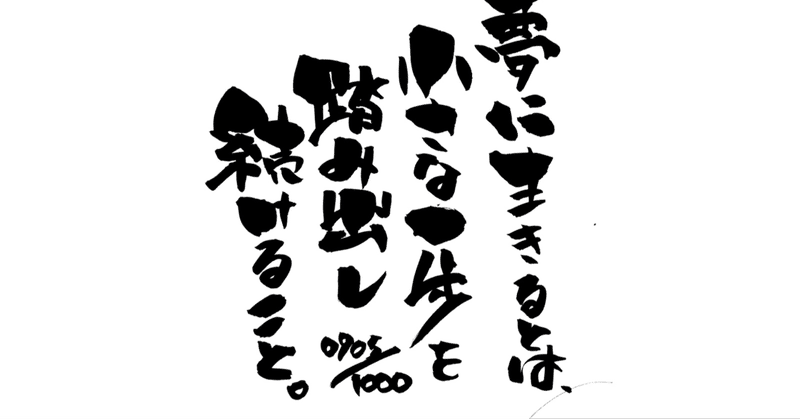 夢に生きるとは、
小さな一歩を
踏み出し
続けること。
0905/1000